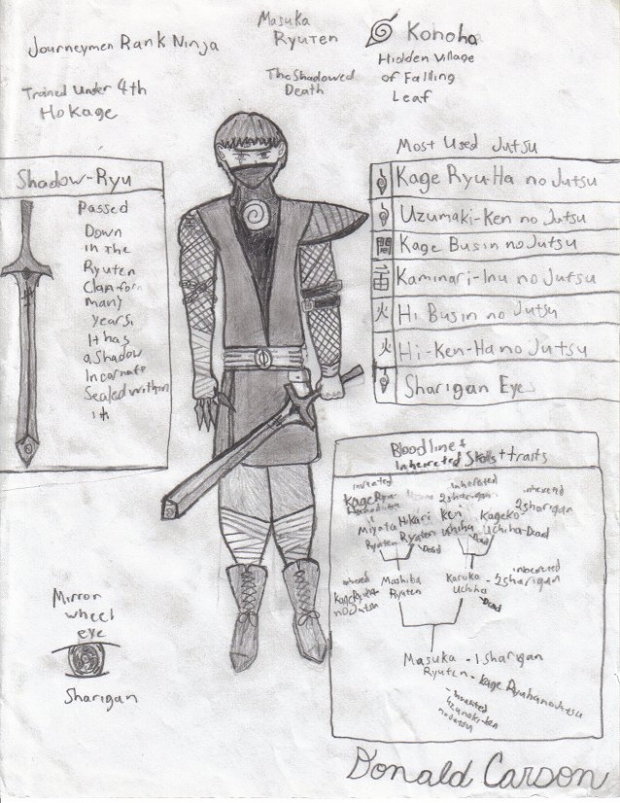 Journeymen Rank Ninja
Masuka
Ryuten
Konoha
Hidden Village
of Falling
Leaf
Trained Under 4th
Hokage
The Shadowed
Death
Shadow-Ryu
Passed
Down
in the
Ryuten
Clan for
many
years,
It has
a Shadow
Incarnate
Sealed within
it
Most Used Jutsu
Kage Ryu-Ha no Jutsu
Uzumaki-Ken no Jutsu
Kage Busin no Jutsu
Kaminari-Inu no Jutsu
火 Hi Busin no Jutsu
火 Hi-Ken-Ha no Jutsu
Sharigan Eyes
Bloodline +
Inhereted Skills + traits
inhereted
2 sharigan
inhereted
2 sharigan
Miyata Hikari Ken Kageko
Ryuten Ryuten Uchiha Uchiha-Dead
Dead Dead
Mashiba
Ryuten
Uchiha
-Dead
inhereted
2 sharigan
Masuka - 1 sharigan
Ryuten - Kage Ryuhanojutsu
-Inhereted
Uzumaki-ken
nojutsu
Mirror
wheel
eye
Sharigan
Donald Carson